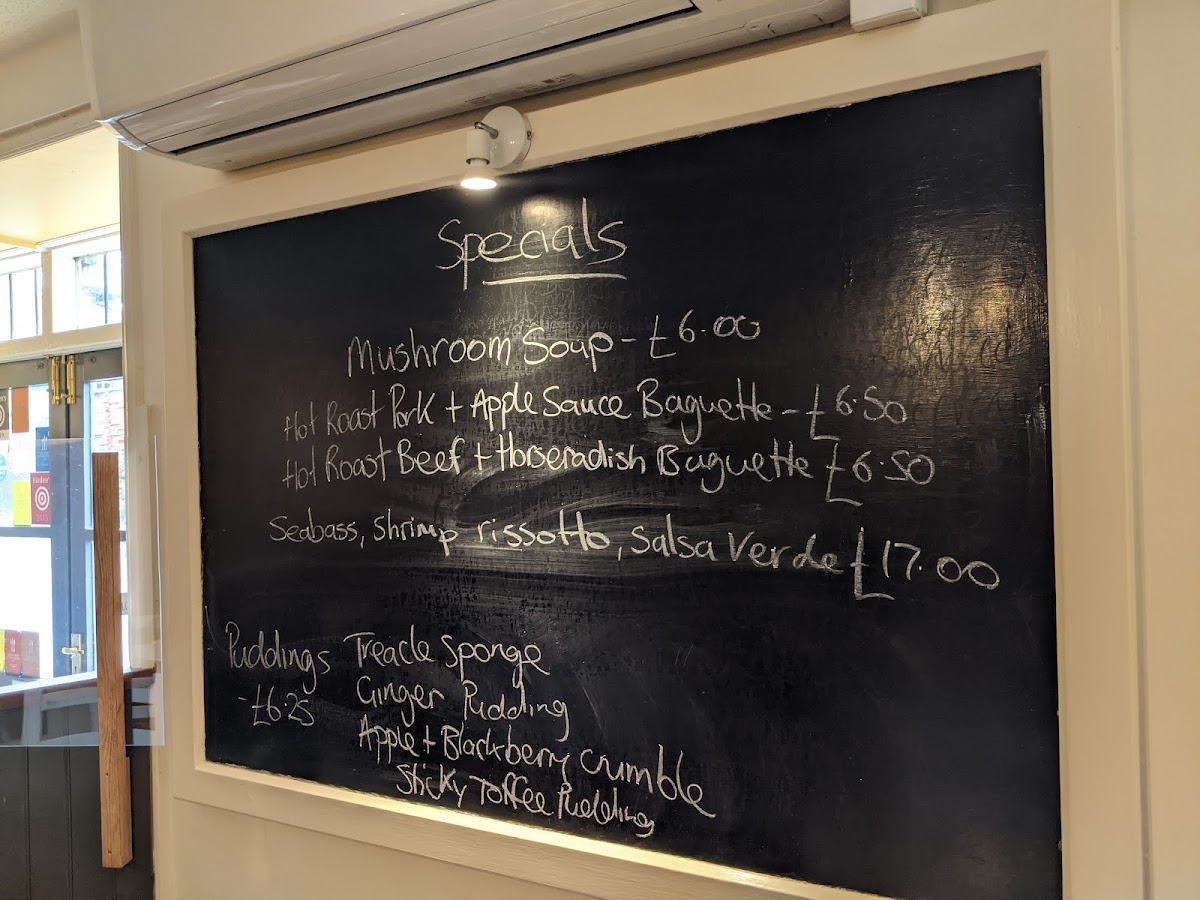 Specials
Mushroom Soup - £6.00
Hot Roast Pork + Apple Sauce Baguette - £6.50
Hot Roast Beef + Horseradish Baguette £6.50
Seabass, Shrimp rissotto, Salsa Verde £17.00
Puddings
- £6.25
Treacle Sponge
Ginger Pudding
Apple + Blackberry crumble
Sticky Toffee Pudding